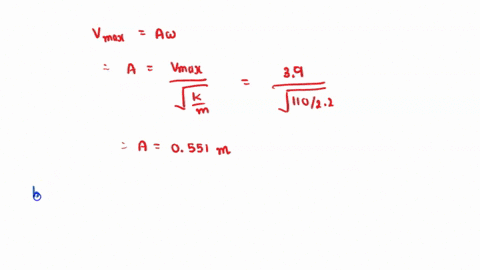 Vmax = Aω
∴ A = Vmax / √(k/m) = 3.9 / √(110/2.2)
∴ A = 0.551 m
b